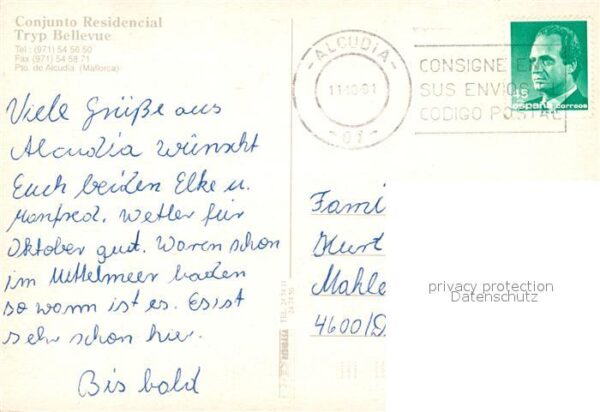 Conjunto Residencial
Tryp Bellevue
Tel: (971) 54 56 50
Fax (971) 54 58 71
Pto. de Alcudia (Mallorca)
Viele Grüße aus
Alcudia wünscht
Euch beiden Elke u.
Manfred. Wetter für
Oktober gut. Waren schon
im Mittelmeer baden
so warm ist es. Es ist
sehr schön hier.
Bis bald
-ALCUDIA-
11-10-91
-01-
CONSIGNE EN
SUS ENVIOS
CODIGO POSTAL
45
españa correos
Fami
Kurt
Mahle
4600/D
privacy protection
Datenschutz